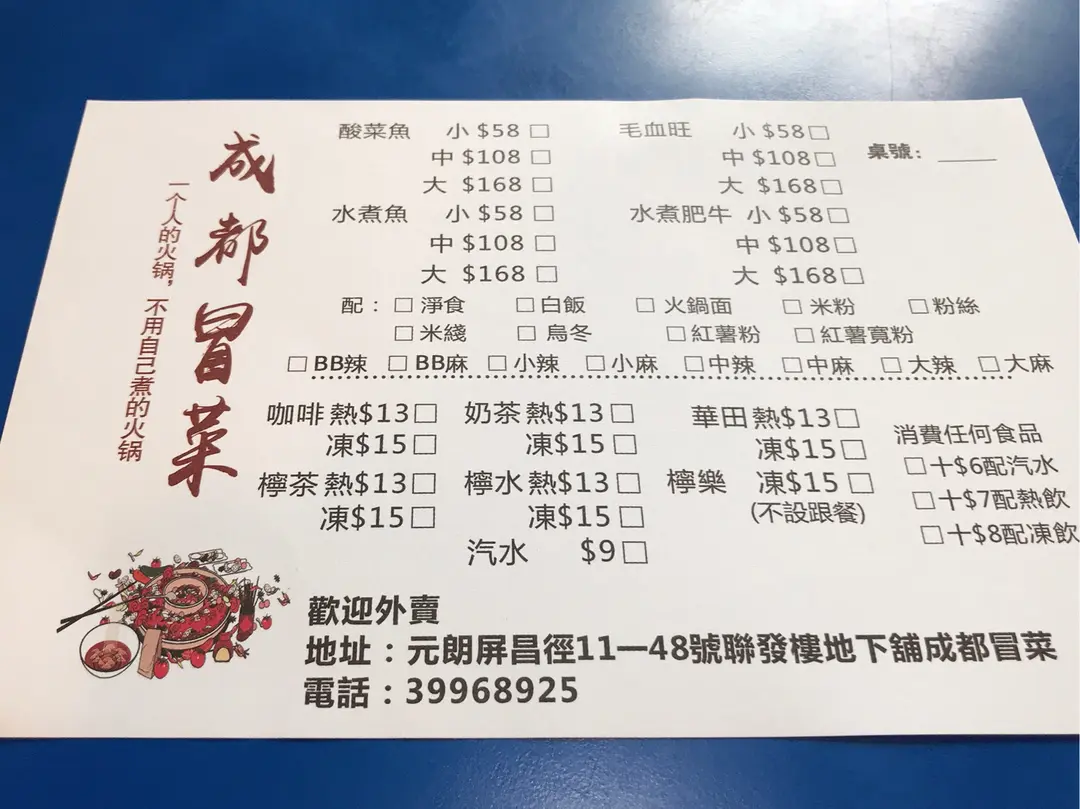 成都冒菜
一个人的火锅，不用自己煮的火锅
酸菜魚 小 $58 □ 毛血旺 小 $58□ 桌號：____
中 $108 □ 中 $108□
大 $168 □ 大 $168□
水煮魚 小 $58 □ 水煮肥牛 小 $58□
中 $108 □ 中 $108□
大 $168 □ 大 $168□
配：□ 淨食 □ 白飯 □ 火鍋面 □ 米粉 □ 粉絲
□ 米綫 □ 烏冬 □ 紅薯粉 □ 紅薯寬粉
□ BB辣 □ BB麻 □ 小辣 □ 小麻 □ 中辣 □ 中麻 □ 大辣 □ 大麻
咖啡 熱$13□ 奶茶 熱$13□ 華田 熱$13□ 消費任何食品
凍$15□ 凍$15□ 凍$15□ □十$6配汽水
檸茶 熱$13□ 檸水 熱$13□ 檸樂 凍$15 □ □十$7配熱飲
凍$15□ 凍$15□ (不設跟餐) □十$8配凍飲
汽水 $9□
歡迎外賣
地址：元朗屏昌徑11—48號聯發樓地下舖成都冒菜
電話：39968925